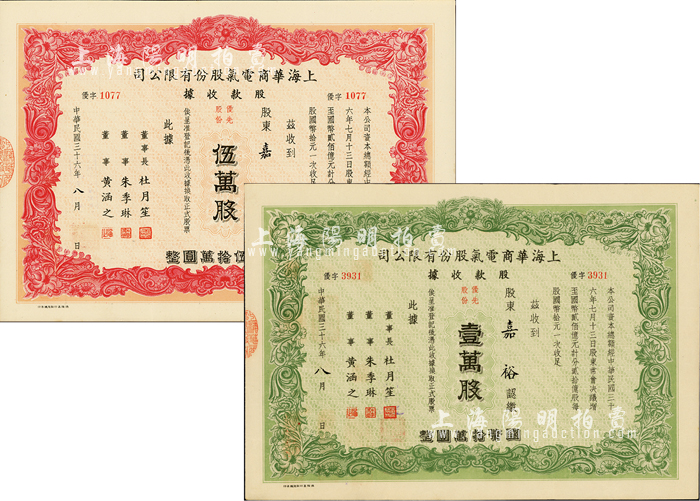 上海陽明拍賣
司公限有份股氣電商華海上
據收款股
優字 1077
優字 1077
本公司資本總額經中華民國三十
六年七月十三日股東
至國幣貳佰億元計分
股國幣拾元一次收足
茲收到
股東 嘉
優先
股份
伍萬股
俟呈准登記後憑此收據換取正式股票
此據
董事長 杜月笙
董事 朱季琳
董事 黃涵之
中華民國三十六年 八月 日
整圓萬拾伍
上海陽明拍賣
www.yangmingauction.com
司公限有份股氣電商華海上
據收款股
優字 3931
優字 3931
本公司資本總額經中華民國三十
六年七月十三日股東常會決議增
至國幣貳佰億元計分貳拾億股每
股國幣拾元一次收足
茲收到
股東 嘉裕 認繳
優先
股份
壹萬股
俟呈准登記後憑此收據換取正式股票
此據
董事長 杜月笙
董事 朱季琳
董事 黃涵之
中華民國三十六年 八月 日
整圓萬拾
上海陽明拍賣
www.yangmingauction.com